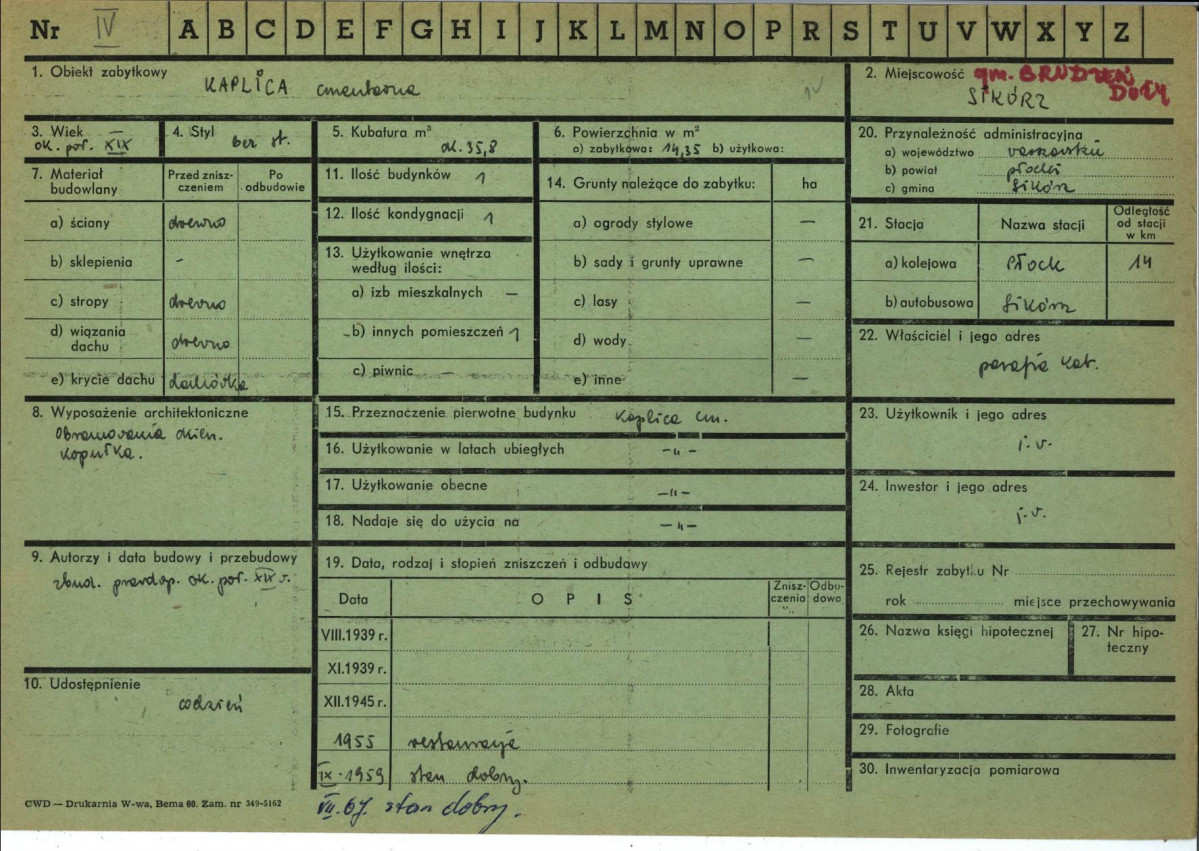 Nr IV A B C D E F G H I J K L M N O P R S T U V W X Y Z
1. Obiekt zabytkowy
KAPLICA cmentarna
2. Miejscowość gm. BRUDZEŃ
DUŻY
SIKÓRZ
3. Wiek
ok. poł. XIX
4. Styl
bez st.
5. Kubatura m³
ok. 35,8
6. Powierzchnia w m²
a) zabytkowa: 14,35 b) użytkowa:
7. Materiał budowlany
Przed znisz-
czeniem
Po
odbudowie
a) ściany drewno
b) sklepienia -
c) stropy drewno
d) wiązania
dachu drewno
e) krycie dachu dachówka
8. Wyposażenie architektoniczne
Obramowania okien.
kopułka.
9. Autorzy i data budowy i przebudowy
zbud. prawdop. ok. poł. XIX w.
10. Udostępnienie
codzień
11. Ilość budynków 1
12. Ilość kondygnacji 1
13. Użytkowanie wnętrza
według ilości:
a) izb mieszkalnych —
b) innych pomieszczeń 1
c) piwnic —
14. Grunty należące do zabytku: ha
a) ogrody stylowe —
b) sady i grunty uprawne —
c) lasy —
d) wody —
e) inne —
15. Przeznaczenie pierwotne budynku kaplica cm.
16. Użytkowanie w latach ubiegłych —„—
17. Użytkowanie obecne —„—
18. Nadaje się do użycia na —„—
19. Data, rodzaj i stopień zniszczeń i odbudowy
Data OPIS Znisz-
czenia
%
Odbu-
dowa
VIII.1939 r.
XI.1939 r.
XII.1945 r.
1955 restauracja
IX.1959 stan dobry.
VII.67. stan dobry.
20. Przynależność administracyjna
a) województwo warszawskie
b) powiat płocki
c) gmina Sikórz
21. Stacja Nazwa stacji Odległość
od stacji
w km
a) kolejowa Płock 14
b) autobusowa Sikórz
22. Właściciel i jego adres
parafia kat.
23. Użytkownik i jego adres
j.w.
24. Inwestor i jego adres
j.w.
25. Rejestr zabytku Nr
rok miejsce przechowywania
26. Nazwa księgi hipotecznej
27. Nr hipo-
teczny
28. Akta
29. Fotografie
30. Inwentaryzacja pomiarowa
CWD — Drukarnia W-wa, Bema 60. Zam. nr 349-5162